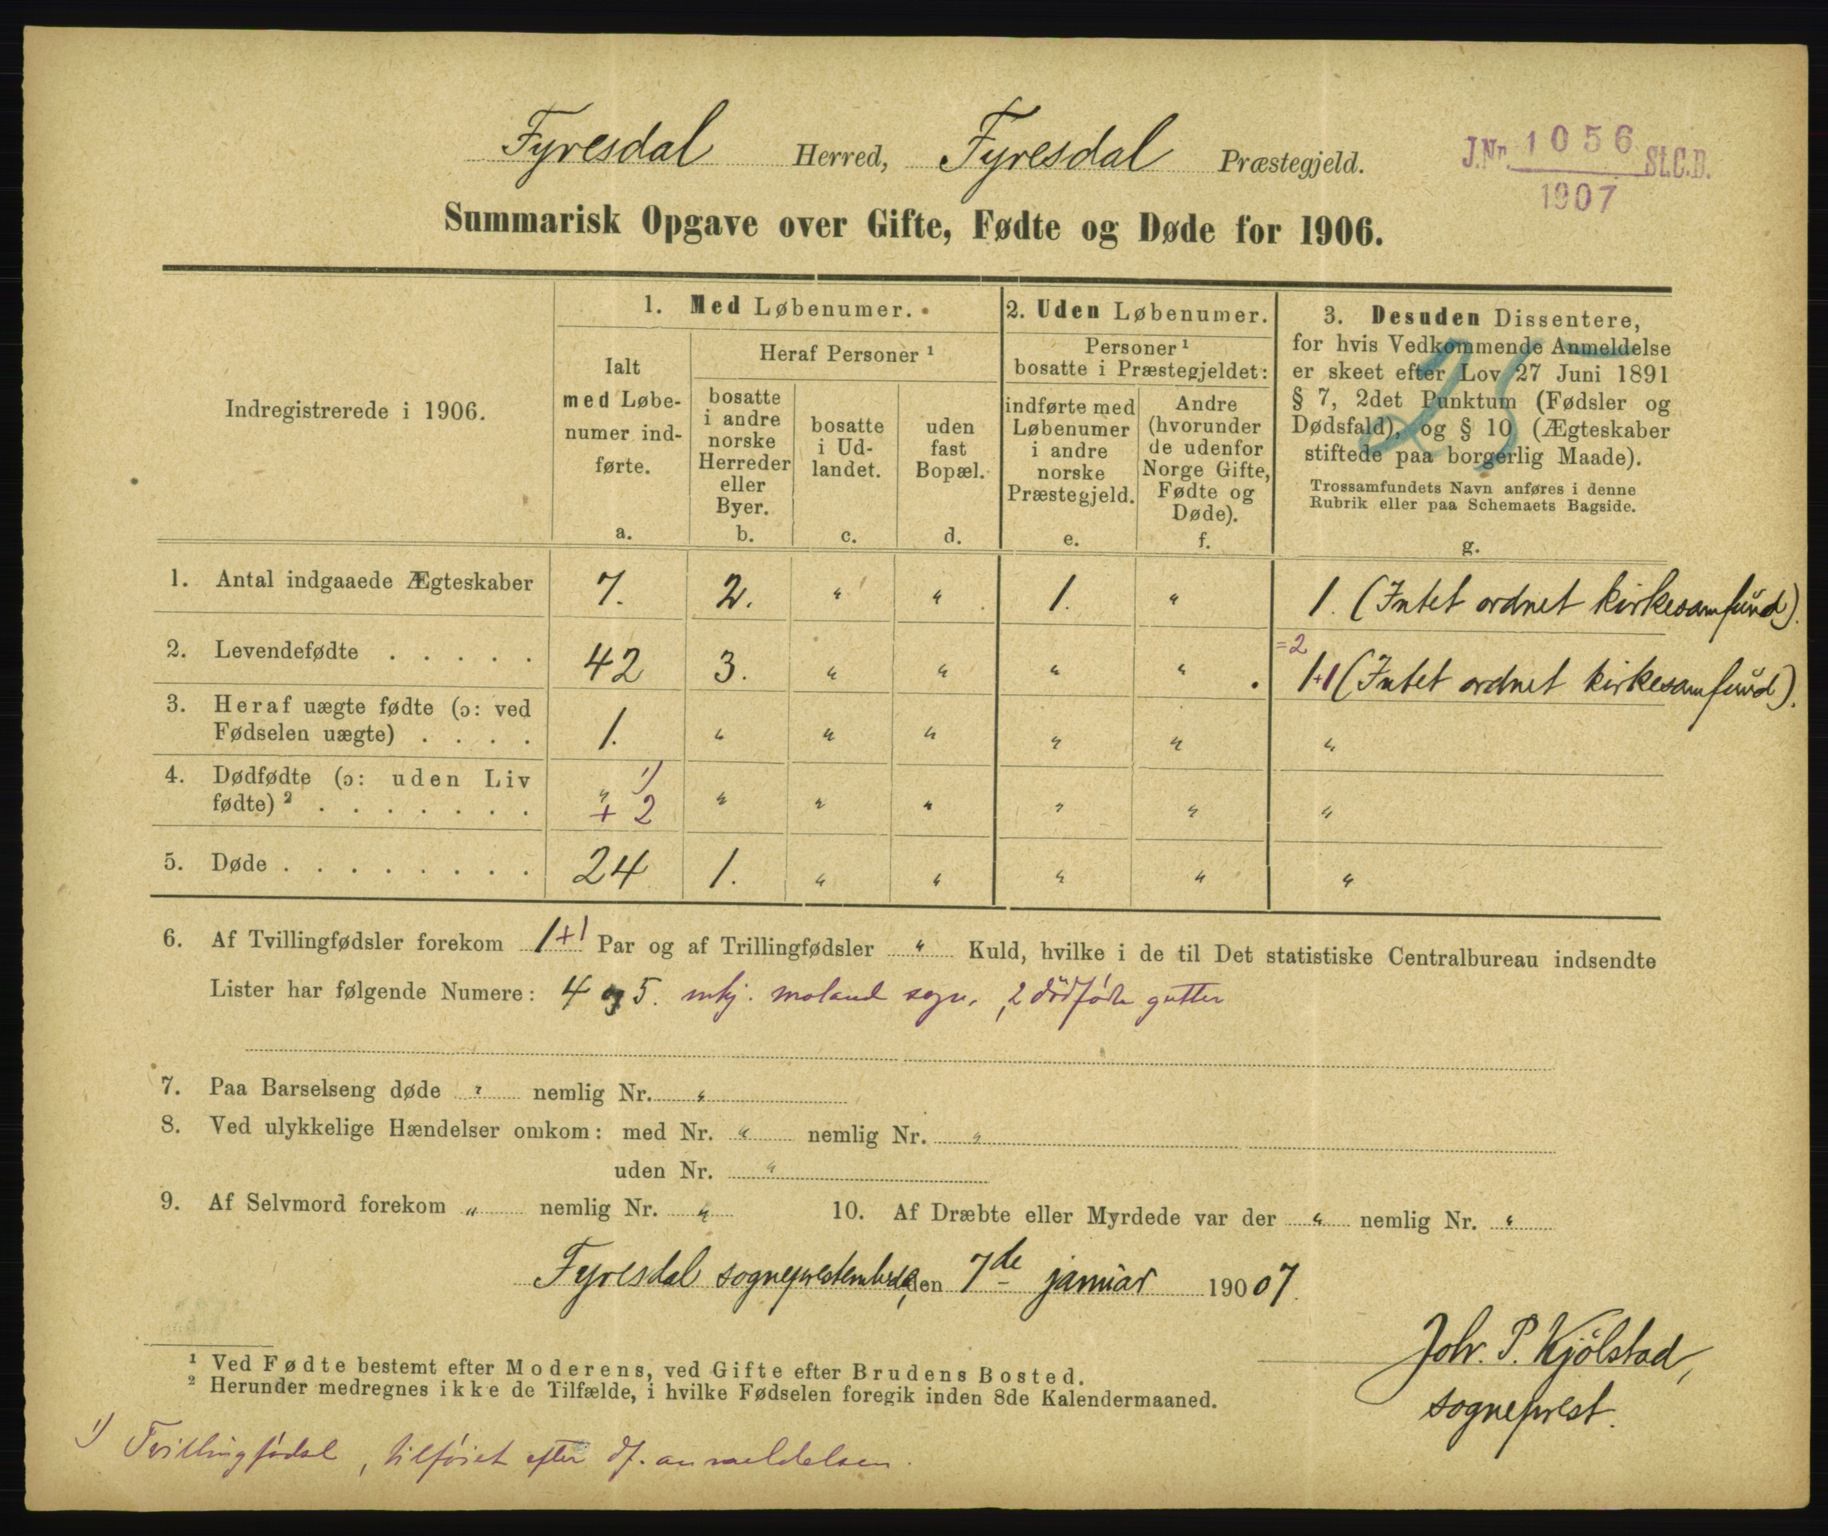 Fyresdal Herred, Fyresdal Præstegjeld.
J.Nr. 1056 St.C.B.
1907
Summarisk Opgave over Gifte, Fødte og Døde for 1906.
Indregistrerede i 1906.
1. Med Løbenumer.
Ialt
med Løbe-
numer ind-
førte.
a.
Heraf Personer ¹
bosatte
i andre
norske
Herreder
eller
Byer.
b.
bosatte
i Ud-
landet.
c.
uden
fast
Bopæl.
d.
2. Uden Løbenumer.
Personer ¹
bosatte i Præstegjeldet:
indførte med
Løbenumer
i andre
norske
Præstegjeld.
e.
Andre
(hvorunder
de udenfor
Norge Gifte,
Fødte og
Døde).
f.
3. Desuden Dissentere,
for hvis Vedkommende Anmeldelse
er skeet efter Lov 27 Juni 1891
§ 7, 2det Punktum (Fødsler og
Dødsfald), og § 10 (Ægteskaber
stiftede paa borgerlig Maade).
Trossamfundets Navn anføres i denne
Rubrik eller paa Schemaets Bagside.
g.
25
1. Antal indgaaede Ægteskaber 7. 2. " " 1. " 1. (Intet ordnet kirkesamfund).
=2
2. Levendefødte . . . . . 42 3. " " " " 1+1 (Intet ordnet kirkesamfund).
3. Heraf uægte fødte (ɔ: ved
Fødselen uægte) . . . . 1. " " " " " "
4. Dødfødte (ɔ: uden Liv
fødte) ² . . . . . . . " + 2 ¹) " " " " " "
5. Døde . . . . . . . . 24 1. " " " " "
6. Af Tvillingfødsler forekom 1+1 Par og af Trillingfødsler " Kuld, hvilke i de til Det statistiske Centralbureau indsendte
Lister har følgende Numere: 4 og 5. mkj. moland sogn, 2 dödfödte gutter
7. Paa Barselseng døde " nemlig Nr. "
8. Ved ulykkelige Hændelser omkom: med Nr. " nemlig Nr. "
uden Nr. "
9. Af Selvmord forekom " nemlig Nr. " 10. Af Dræbte eller Myrdede var der " nemlig Nr. "
Fyresdal sogneprestembede, den 7de januar 190 07.
Joh. P. Kjölstad,
sogneprest.
¹ Ved Fødte bestemt efter Moderens, ved Gifte efter Brudens Bosted.
² Herunder medregnes ikke de Tilfælde, i hvilke Fødselen foregik inden 8de Kalendermaaned.
¹) Tvillingfødsel, tilføiet efter df. anmeldelsen.